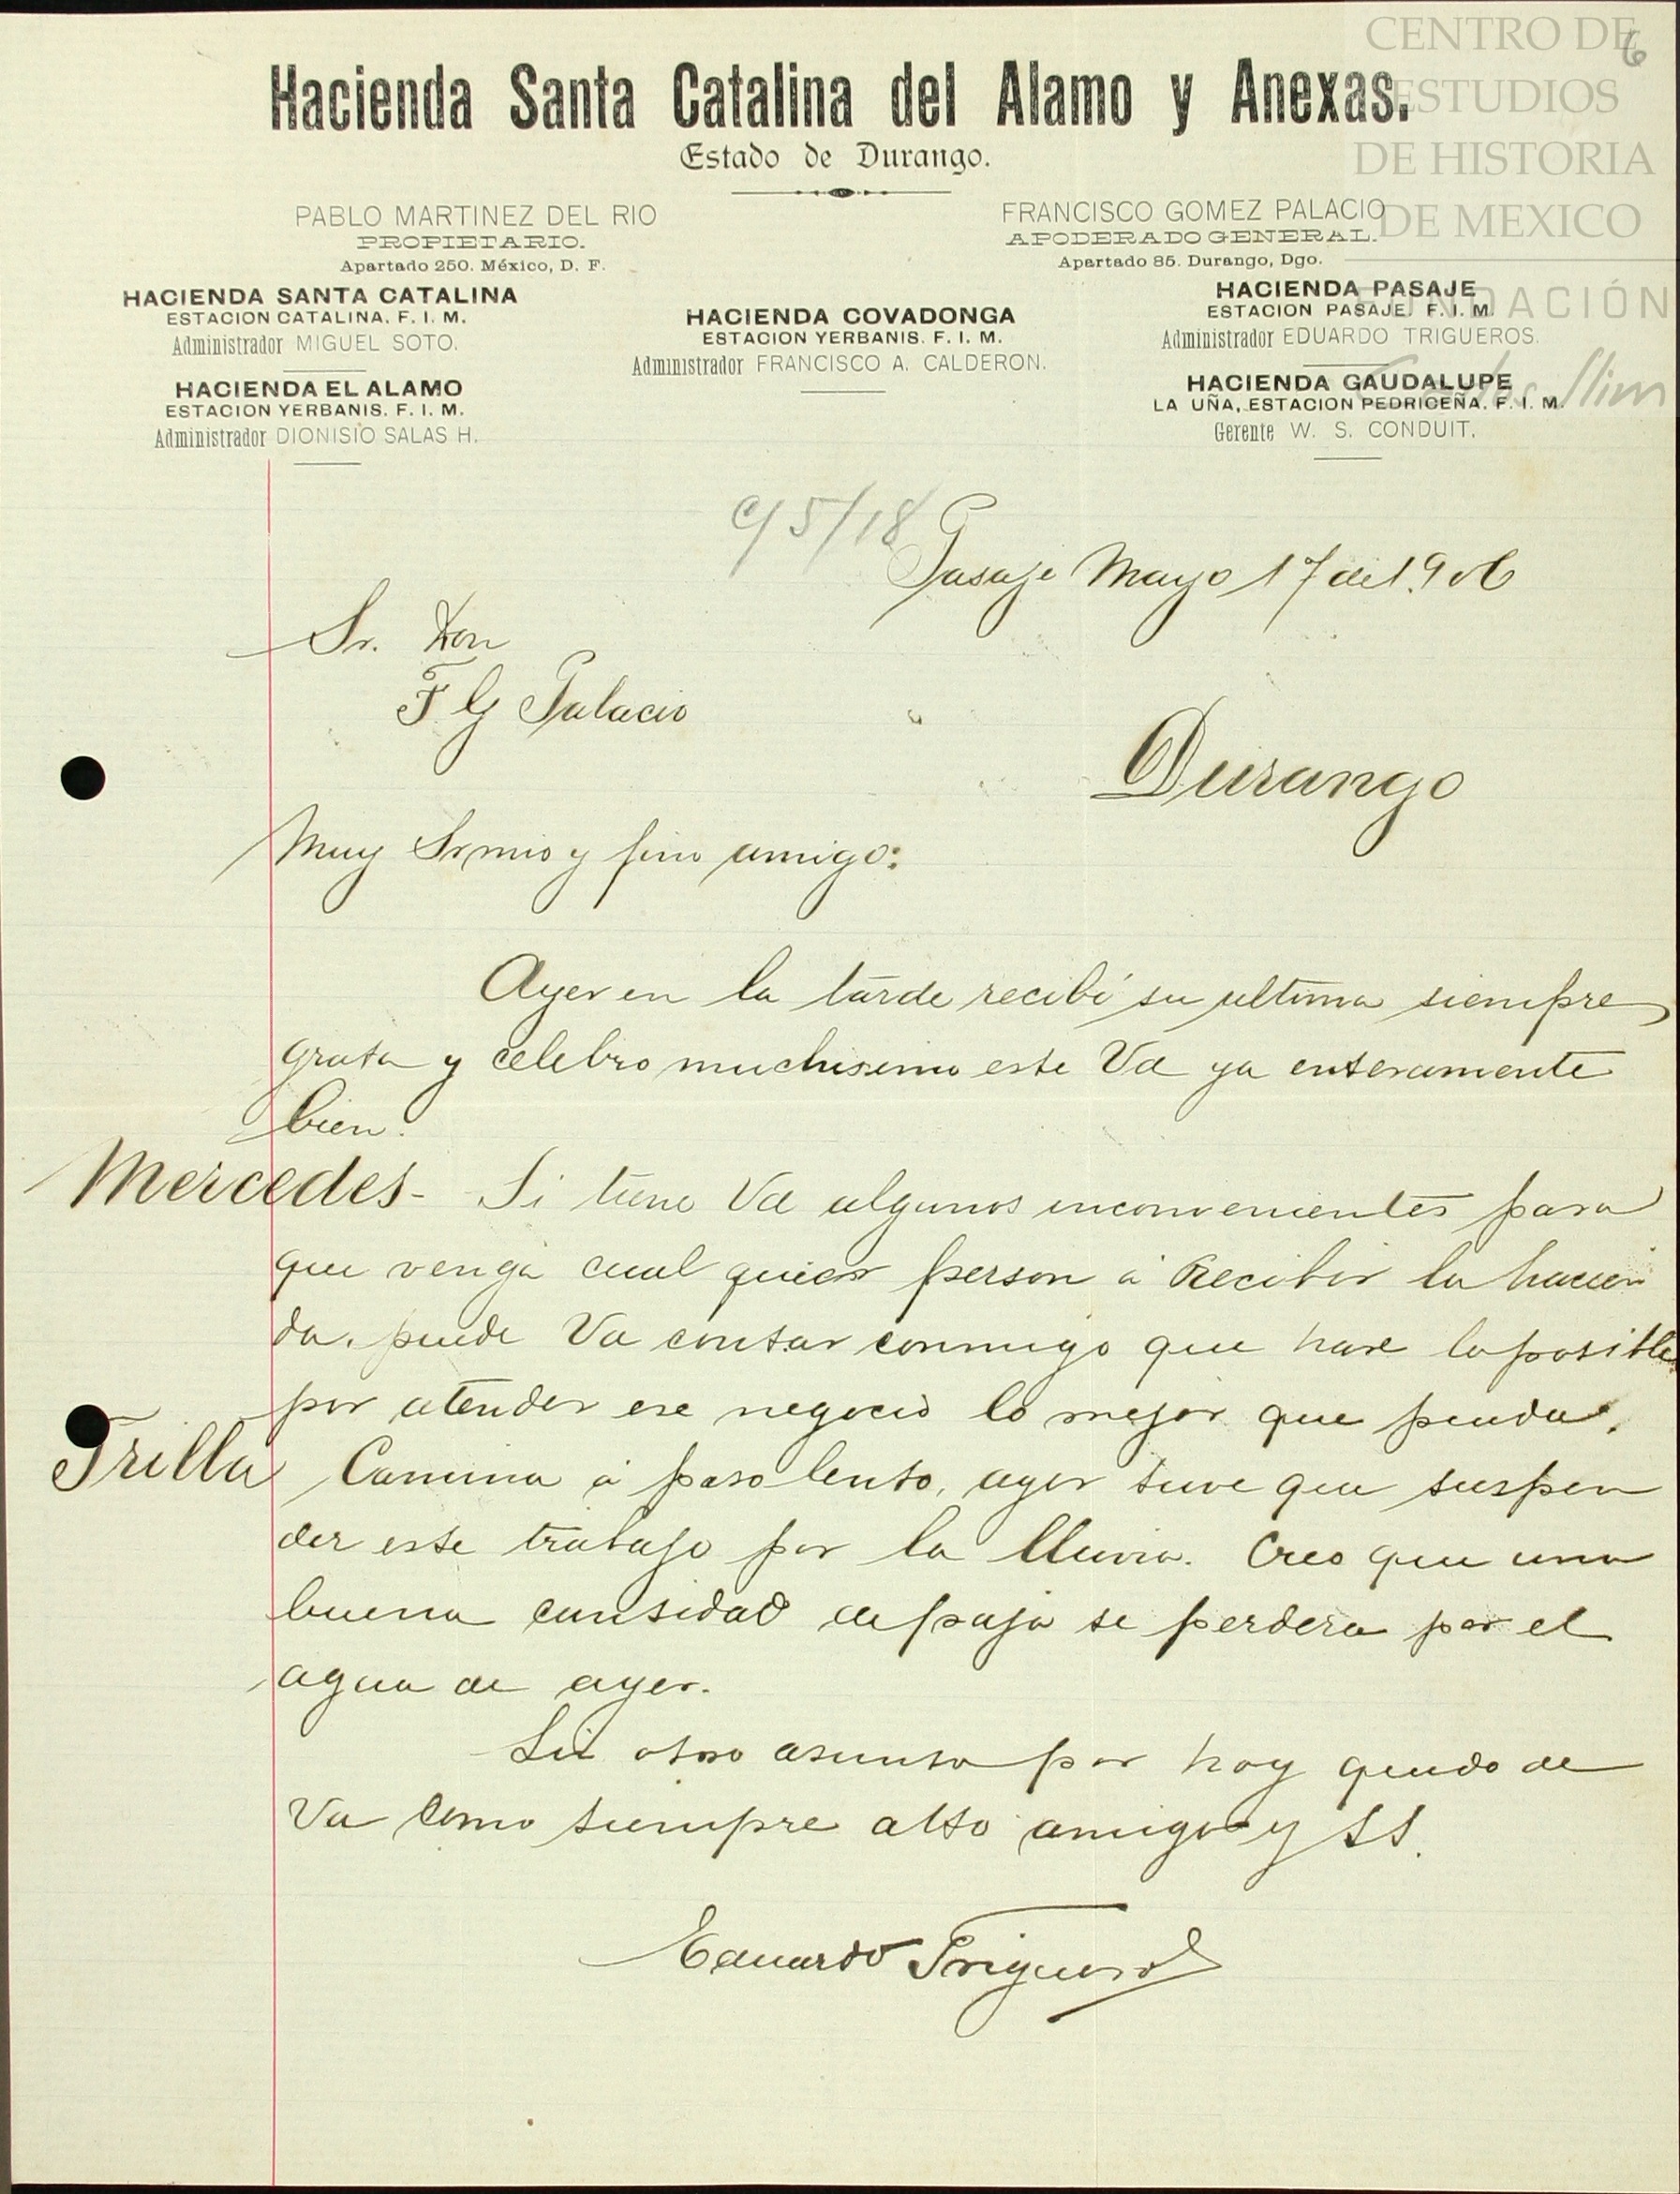 CENTRO DE
ESTUDIOS
DE HISTORIA
DE MEXICO
FUNDACIÓN
Carlos Slim
6
Hacienda Santa Catalina del Alamo y Anexas.
Estado de Durango.
PABLO MARTINEZ DEL RIO
PROPIETARIO.
Apartado 250. México, D. F.
FRANCISCO GOMEZ PALACIO
APODERADO GENERAL.
Apartado 85. Durango, Dgo.
HACIENDA SANTA CATALINA
ESTACION CATALINA. F. I. M.
Administrador MIGUEL SOTO.
HACIENDA EL ALAMO
ESTACION YERBANIS. F. I. M.
Administrador DIONISIO SALAS H.
HACIENDA COVADONGA
ESTACION YERBANIS. F. I. M.
Administrador FRANCISCO A. CALDERON.
HACIENDA PASAJE
ESTACION PASAJE. F. I. M.
Administrador EDUARDO TRIGUEROS.
HACIENDA GAUDALUPE
LA UÑA, ESTACION PEDRICEÑA. F. I. M.
Gerente W. S. CONDUIT.
c/ 5/18
Pasaje Mayo 17 de 1.906
Sr. Don
F G Palacio
Durango
Muy Sr mio y fino amigo:
Ayer en la tarde recibí su ultima siempre
grata y celebro muchisimo este Vd ya enteramente
bien.
Mercedes- Si tiene Vd algunos inconvenientes para
que venga cual quier person á Recibir la hacien
da. puede Vd contar conmigo que hare lo posible
por atender ese negocio lo mejor que pueda.
Trilla Camina á paso lento, ayer tuve que suspen
der este trabajo por la lluvia. Creo que una
buena cantidad de paja se perdera por el
agua de ayer.
Sin otro asunto por hoy quedo de
Vd como siempre atto amigo y SS.
Eduardo Trigueros